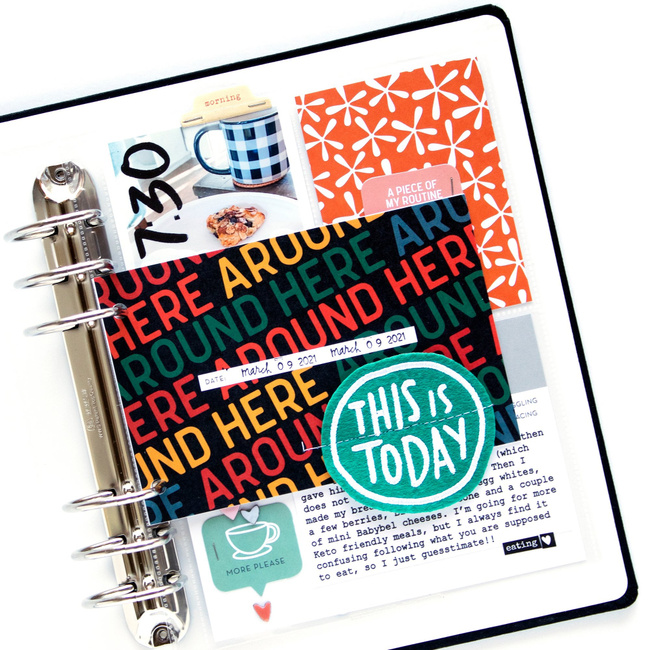 morning
7:30
A PIECE OF
MY ROUTINE
ROUND AROUND
HERE AROUND HERE AROU
AROUND HERE AROUND HERE
HERE AROUND HERE AROUND
UND HERE AROUND HERE
HERE AROUND
AROUND
HERE
DATE: march 09 2021 march 09 2021
THIS IS
TODAY
GLING
ACING
then
(which
Then I
gave hi
does not egg whites,
made my bre one and a couple
a few berries,
of mini Babybel cheeses. I'm going for more
Keto friendly meals, but I always find it
confusing following what you are supposed
to eat, so I just guesstimate!!
eating
MORE PLEASE